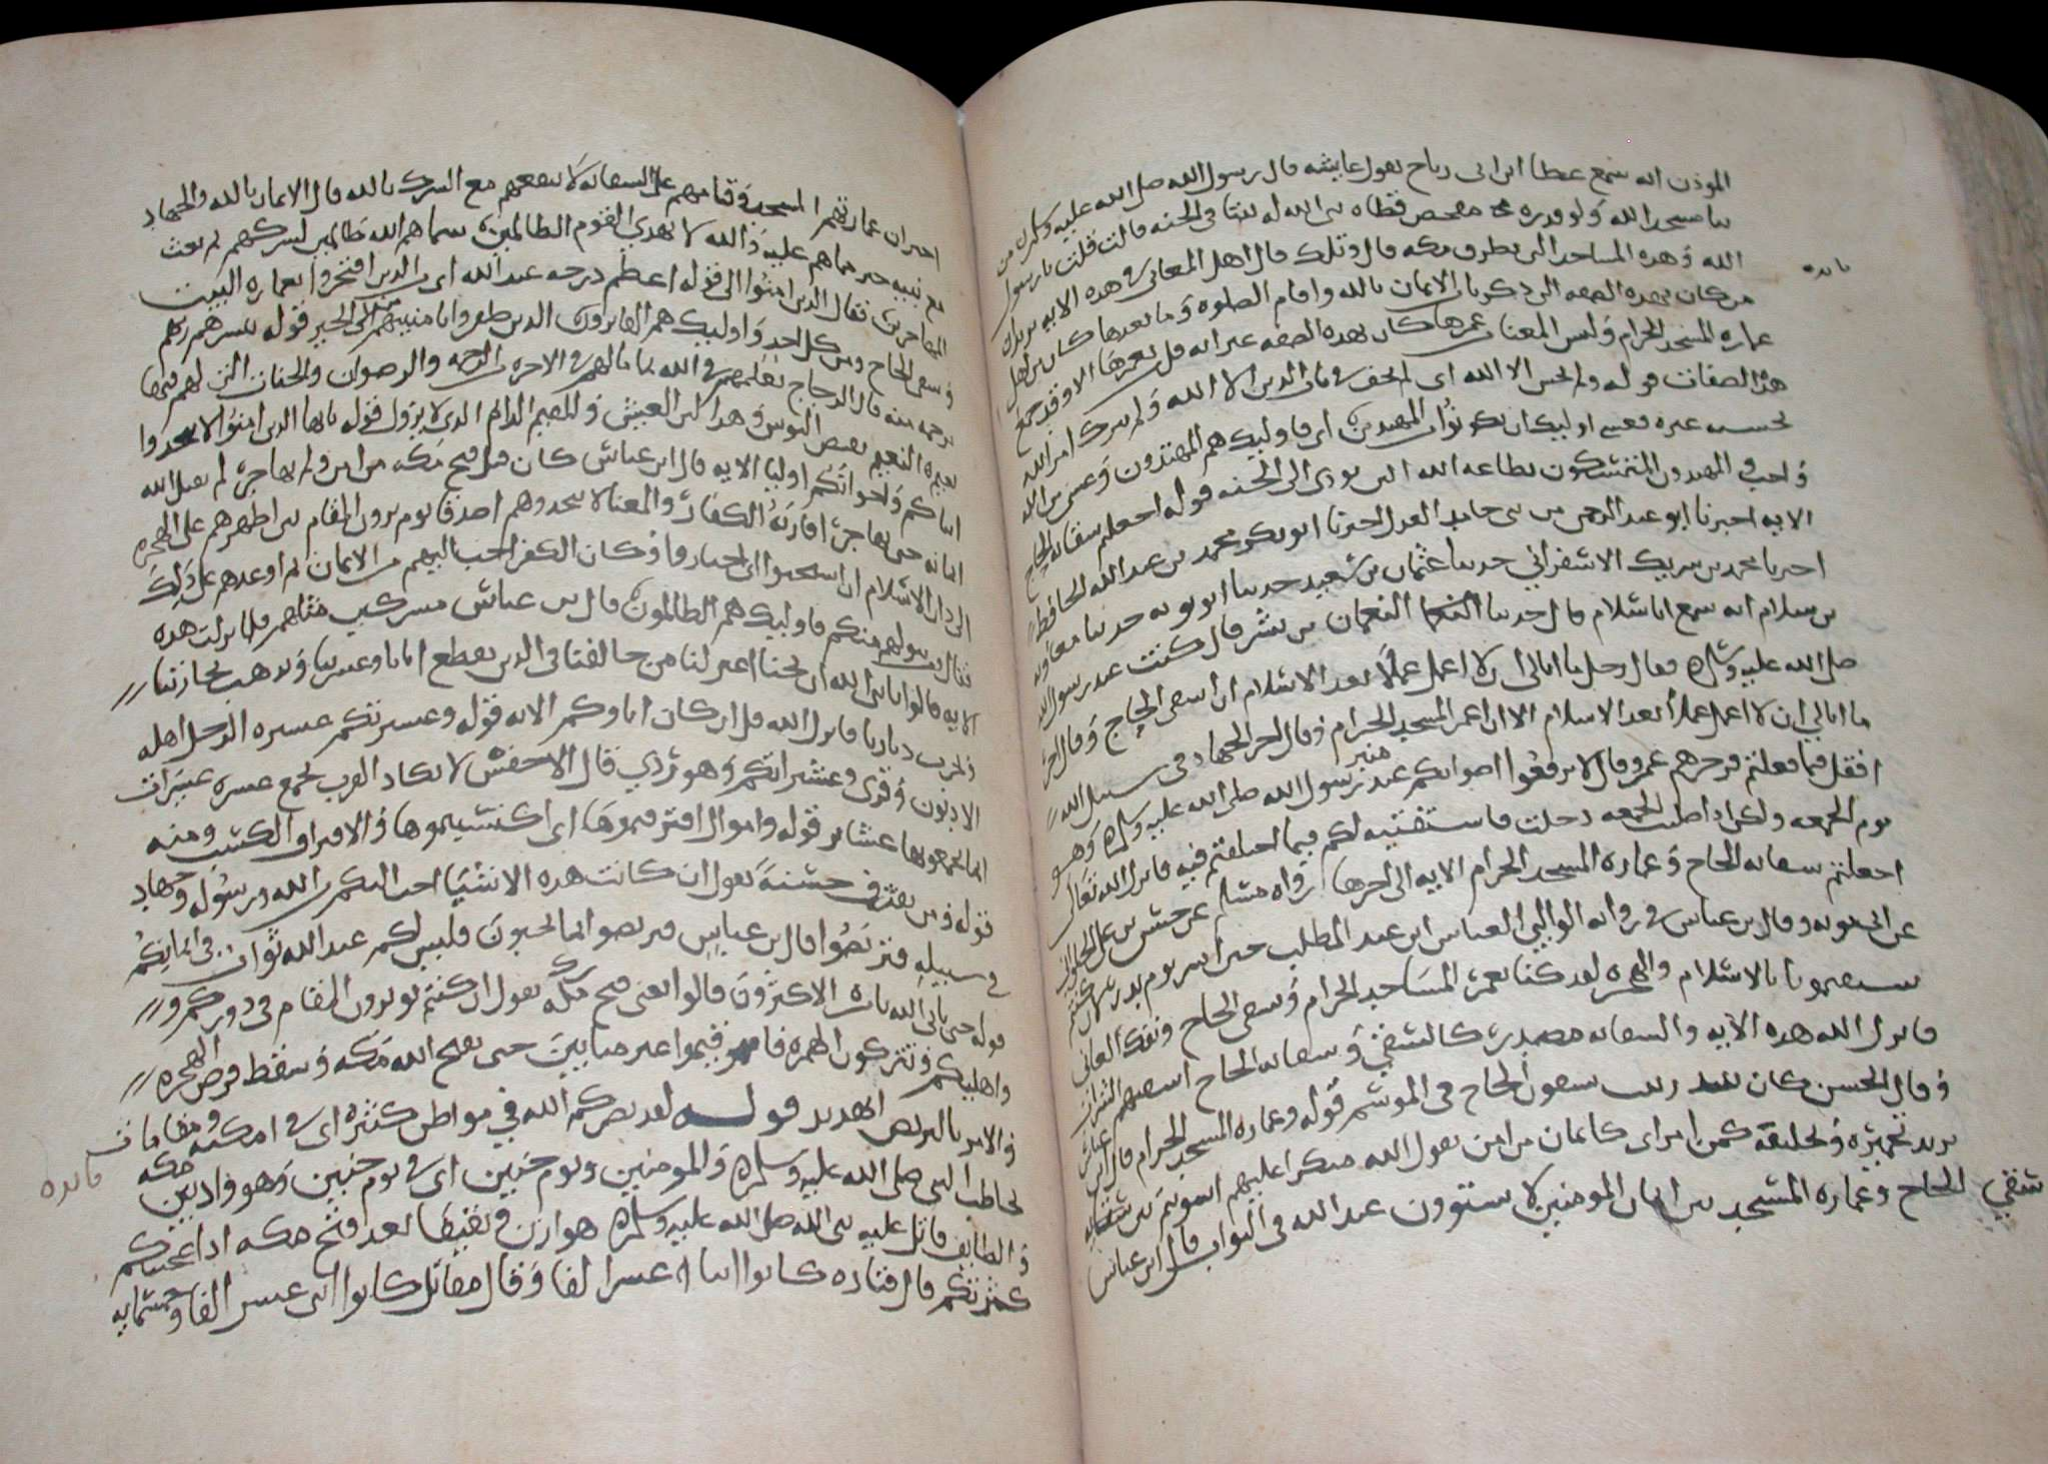 الموذن انه سمع عطا ابن ابى رباح يقول عايشه قال رسول الله صلى الله عليه وسلم من
بنا مسجدا لله ولو قدر مفحص قطاه بنى الله له بيتا فى الجنه قالت قلت يا رسول
الله وهذه المساجد التى بطرق مكه قال وتلك قال اهل المعانى فى هذه الايه يريد ان
فايده
من كان بهذه الصفه التى ذكر بالايمان بالله واقام الصلوه وما بعدها كان من اهل
عماره المسجد الحرام وليس المعنا من عمرها كان بهذه الصفه غير انه قل من يعمرها الا وقد جمع
هذا الصفات قوله ولم يخش الا الله اى لم يخف فى باب الدين الا الله ولم يترك امر الله
لخشيه غيره فعسى اوليك ان يكونوا من المهتدين اى فاوليك هم المهتدون وعسى من الله
واجب والمهتدون المتمسكون بطاعه الله التى تودى الى الجنه قوله اجعلتم سقايه الحاج
الايه اخبرنا ابو عبد الرحمن بن ابى حامد العدل اخبرنا ابو بكر محمد بن عبد الله الحافظ
اخبرنا محمد بن شريك الاسفرانى حدثنا عثمان بن سعيد حدثنا ابو توبه حدثنا معاويه
بن سلام انه سمع ابا سلام قال حدثنا النعمان بن بشير قال كنت عند رسول الله
صلى الله عليه وسلم فقال رجل ما ابالى ان لا اعمل عملا بعد الاسلام ان اسقى الحاج وقال اخر
ما ابالى ان لا اعمل عملا بعد الاسلام الا ان اعمر المسجد الحرام وقال اخر الجهاد فى سبيل الله
افضل مما فعلتم فزجرهم عمر وقال لا ترفعوا اصواتكم عند منبر رسول الله صلى الله عليه وسلم وهو
يوم الجمعه ولكن اذا صليت الجمعه دخلت فاستفتيه لكم فيما اختلفتم فيه فانزل الله تعالى
اجعلتم سقايه الحاج وعماره المسجد الحرام الايه الى اخرها رواه مسلم عن حسن بن على الحلوانى
عن ابى توبه وقال بن عباس فى روايه الوالبى العباس ابن عبد المطلب حين اسر يوم بدر لين كنتم
سبقتمونا بالاسلام والهجره لقد كنا نعمر المساجد الحرام ونسقى الحاج ونفك العانى
فانزل الله هذه الايه والسقايه مصدر كالسقى وسقايه الحاج اسقيهم الشراب
وقال الحسن كان زبيب يسقون الحاج فى الموسم قوله وعماره المسجد الحرام قال ابن عباس
يريد تجميره وتخليقه كمن امن اى كايمان من امن يقول الله منكرا عليهم اسويتم بين سقايه
سقى الحاج وعماره المسجد بين ايمان المومنين لا يستوون عند الله فى الثواب قال ابن عباس
اخبر ان عمارتهم المسجد وقيامهم على السقايه لا ينفعهم مع الشرك بالله قال الايمان بالله والجهاد
مع نبيه خير مما هم عليه والله لا يهدى القوم الظالمين سماهم الله ظالمين لشركهم ثم نعت
المهاجرين فقال الذين امنوا الى قوله اعظم درجه عند الله اى من الذين افتخروا بعماره البيت
وسقى الحاج ومن كل احد واوليك هم الفايزون الذين ظفروا بامنيتهم من الخير قوله يبشرهم ربهم
برحمه منه قال الزجاج يعلمهم فى الله بما لهم فى الاخره من الرحمه والرضوان والجنات التى لهم فيها
نعيم النعيم نقيض البوس وهذا لين العيش والمقيم الدايم الذى لا يزول قوله يايها الذين امنوا لا تتخذوا
اباكم واخوانكم اوليا الايه قال ابن عباس كان قبل فتح مكه من امن ولم يهاجر لم يقبل الله
ايمانه حتى يهاجر اقاربه الكفار والمعنا لا تتخذوهم اصدقا توثرون المقام بين اظهرهم على الهجره
الى دار الاسلام ان استحبوا اى اختاروا وكان الكفر احب اليهم من الايمان ثم اوعدهم على ذلك
فقال ومن يتولهم منكم فاوليك هم الظالمون قال بن عباس مشركين مثلهم فلما نزلت هذه
الايه قالوا يا نبى الله ان نحن اعتزلنا من خالفنا فى الدين نقطع ابانا وعشيرتنا وتذهب تجارتنا
وتخرب ديارنا فانزل الله قل ان كان اباوكم الايه قوله وعشيرتكم عشيره الرجل اهله
الادنون وقرى وعشيراتكم وهو ردى قال الاخفش لا تكاد العرب تجمع عشيره عشيرات
انما يجمعونها عشاير قوله واموال اقترفتموها اى اكتسبتموها والاقتراف الكسب ومنه
قوله ومن يقترف حسنه يقول ان كانت هذه الاشيا احب اليكم من الله ورسوله وجهاد
فى سبيله فتربصوا قال بن عباس فتربصوا بما تحبون فليس لكم عند الله ثواب فى ايمانكم
قوله حتى ياتى الله بامره الاكثرون قالوا يعنى فتح مكه يقول ان كنتم توثرون المقام فى دوركم
واهليكم وتتركون الهجره فاقيموا غير مثابين حتى يفتح الله مكه وسقط فرض الهجره
والامر بالتربص تهديد قوله لقد نصركم الله فى مواطن كثيره اى فى امكنه ومقامات
فايده
يخاطب النبى صلى الله عليه وسلم والمومنين ويوم حنين اى فى يوم حنين وهو واد بين مكه
والطايف قاتل عليه نبى الله صلى الله عليه وسلم هوازن وثقيفا بعد فتح مكه اذ اعجبتكم
كثرتكم قال قتاده كانوا اثنا عشر الفا وقال مقاتل كانوا احد عشر الفا وخمسمايه